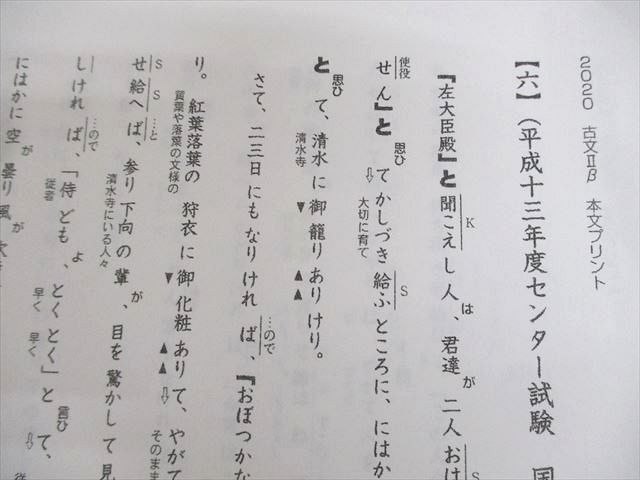 2020 古文Ⅱβ 本文プリント
【六】(平成十三年度センター試験 国
『左大臣殿』と聞こえし人、君達二人おは
K
は
が
S
使役
せん』と てかしづき給ふところに、にはか
思ひ
⇩
大切に育て
S
と て、清水に御籠りありけり。
思ひ
清水寺
▼
▲▲
さて、二三日にもなりければ、『おぼつかな
…ので
り。紅葉落葉の狩衣に御化粧ありて、やがて
黄葉や落葉の文様の
▼
▲▲
⇩
そのまま
せ給へば、参り下向の輩、目を驚かして見
S
S
…と
清水寺にいる人々
が
しければ、「侍ども、とくとく」とて、
…ので
従者
よ
早く 早く
言ひ
⇩
にはかに空曇り風
が
が